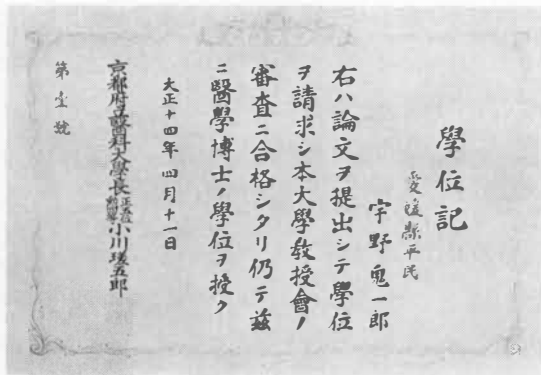 學位記
愛媛縣平民
宇野鬼一郎
右ハ論文ヲ提出シテ學位
ヲ請求シ本大學敎授會ノ
審査ニ合格シタリ仍テ茲
ニ醫學博士ノ學位ヲ授ク
大正十四年四月十一日
京都府立醫科大學長 小川瑳五郎
第壹號